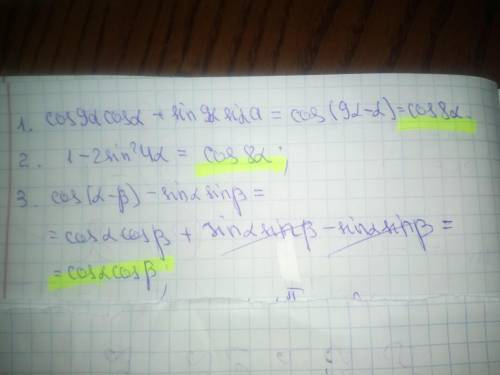 1. cos9α cosα + sin9α sinα = cos(9α-α)=cos8α.
2. 1-2sin²4α = cos8α;
3. cos(α-β) - sinα sinβ =
= cosα cosβ + sinα sinβ - sinα sinβ =
= cosα cosβ;